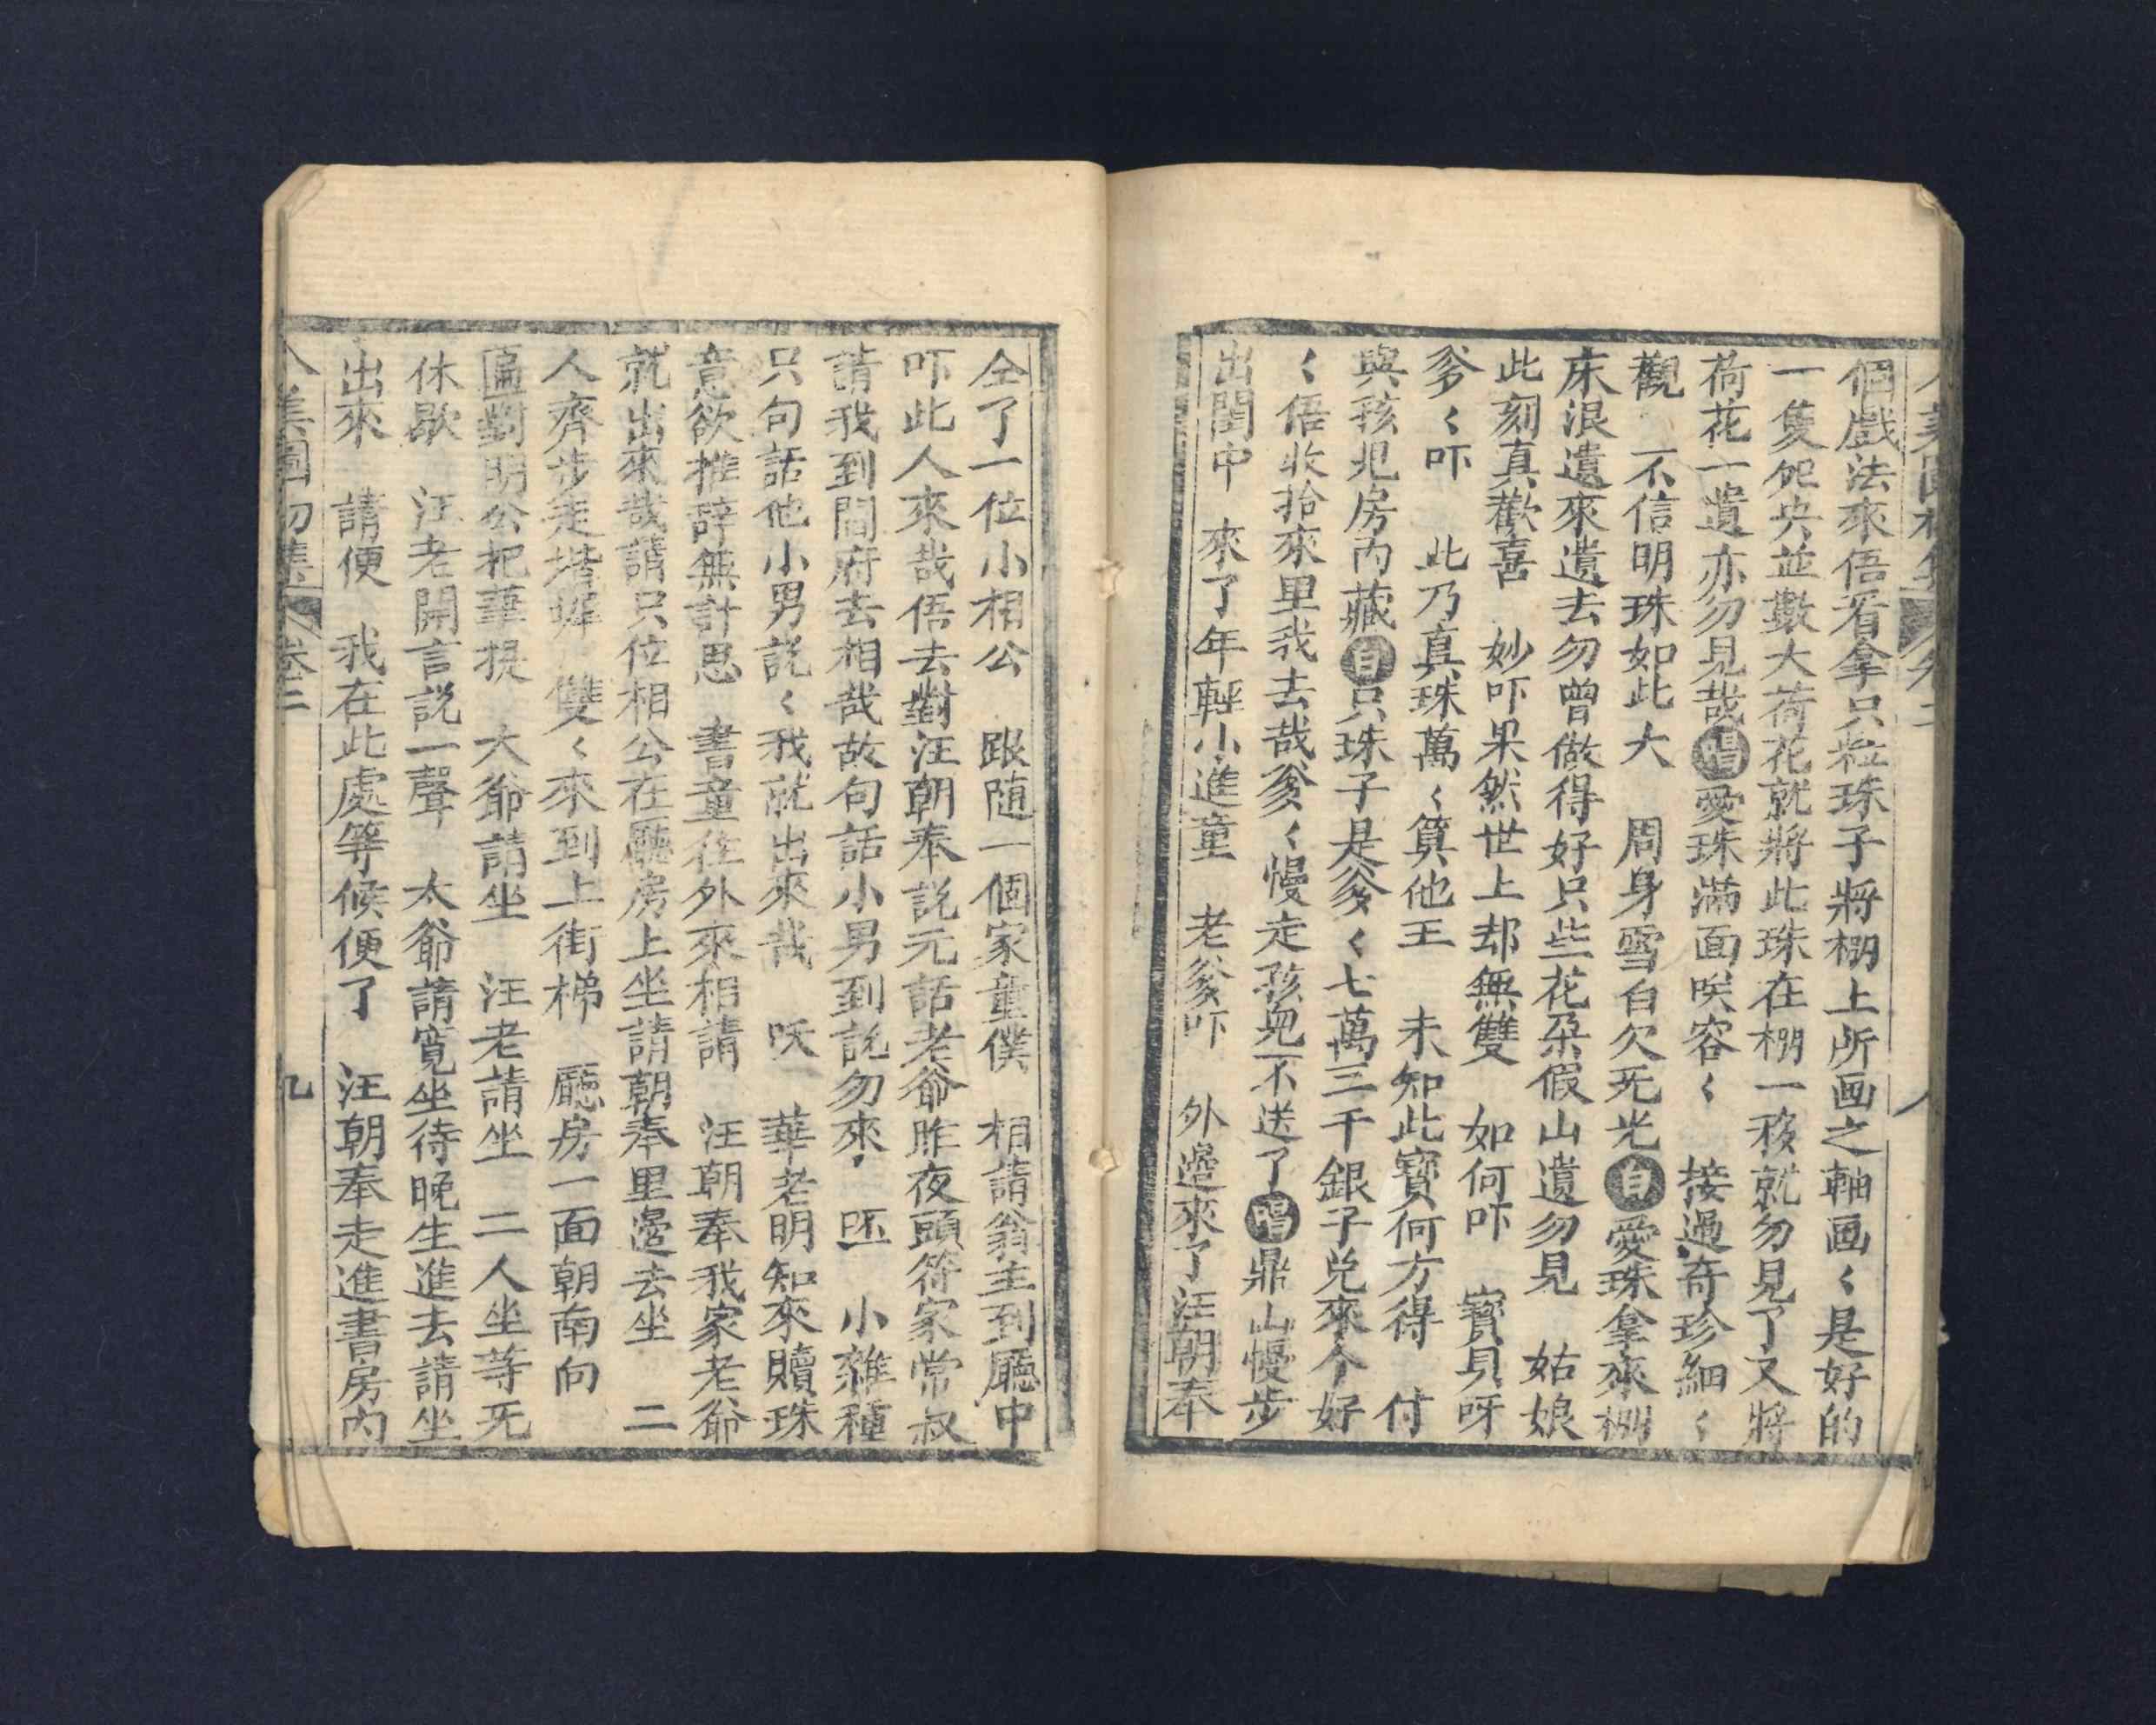 個戲法來俉看拿只粒珠子將棚上所画之軸画く是好的
一隻夗央並數大荷花就將此珠在棚一移就勿見了又將
荷花一遺亦勿見哉唱愛珠滿面咲容く　接過奇珍細く
觀　不信明珠如此大　周身雪白欠死光白愛珠拿來棚
床浪遺來遺去勿曾做得好只些花朵假山遺勿見　姑娘
此刻真歡喜　妙吓果然世上却無雙　如何吓　寶貝呀
爹く吓　此乃真珠萬く算他王　未知此寶何方得　付
與孩児房內藏白只珠子是爹く七萬三千銀子兌來个好
く俉收拾來里我去哉爹く慢走孩兒不送了唱鼎山慢步
出閨中　來了年輕小進童　老爹吓　外邊來了汪朝奉
仝了一位小相公　跟随一個家童僕　相請翁主到廳中
吓此人來哉俉去對汪朝奉説元話老爺昨夜頭符家常叔
請我到閭府去相哉故句話小男到説勿來　呸　小雜種
只句話他小男説く我就出來哉　咲　華老明知來贖珠
意欲推辞無計思　書童往外來相請　汪朝奉我家老爺
就出來哉請只位相公在廳房上坐請朝奉里邊去坐　二
人齊步走堦墀　雙く來到上街梯　廳房一面朝南向
匾對明公把華提　大爺請坐　汪老請坐　二人坐等死
休歇　汪老開言説一聲　太爺請寬坐待晚生進去請坐
出來　請便　我在此處等候便了　汪朝奉走進書房內
八美圖初集　卷二　九